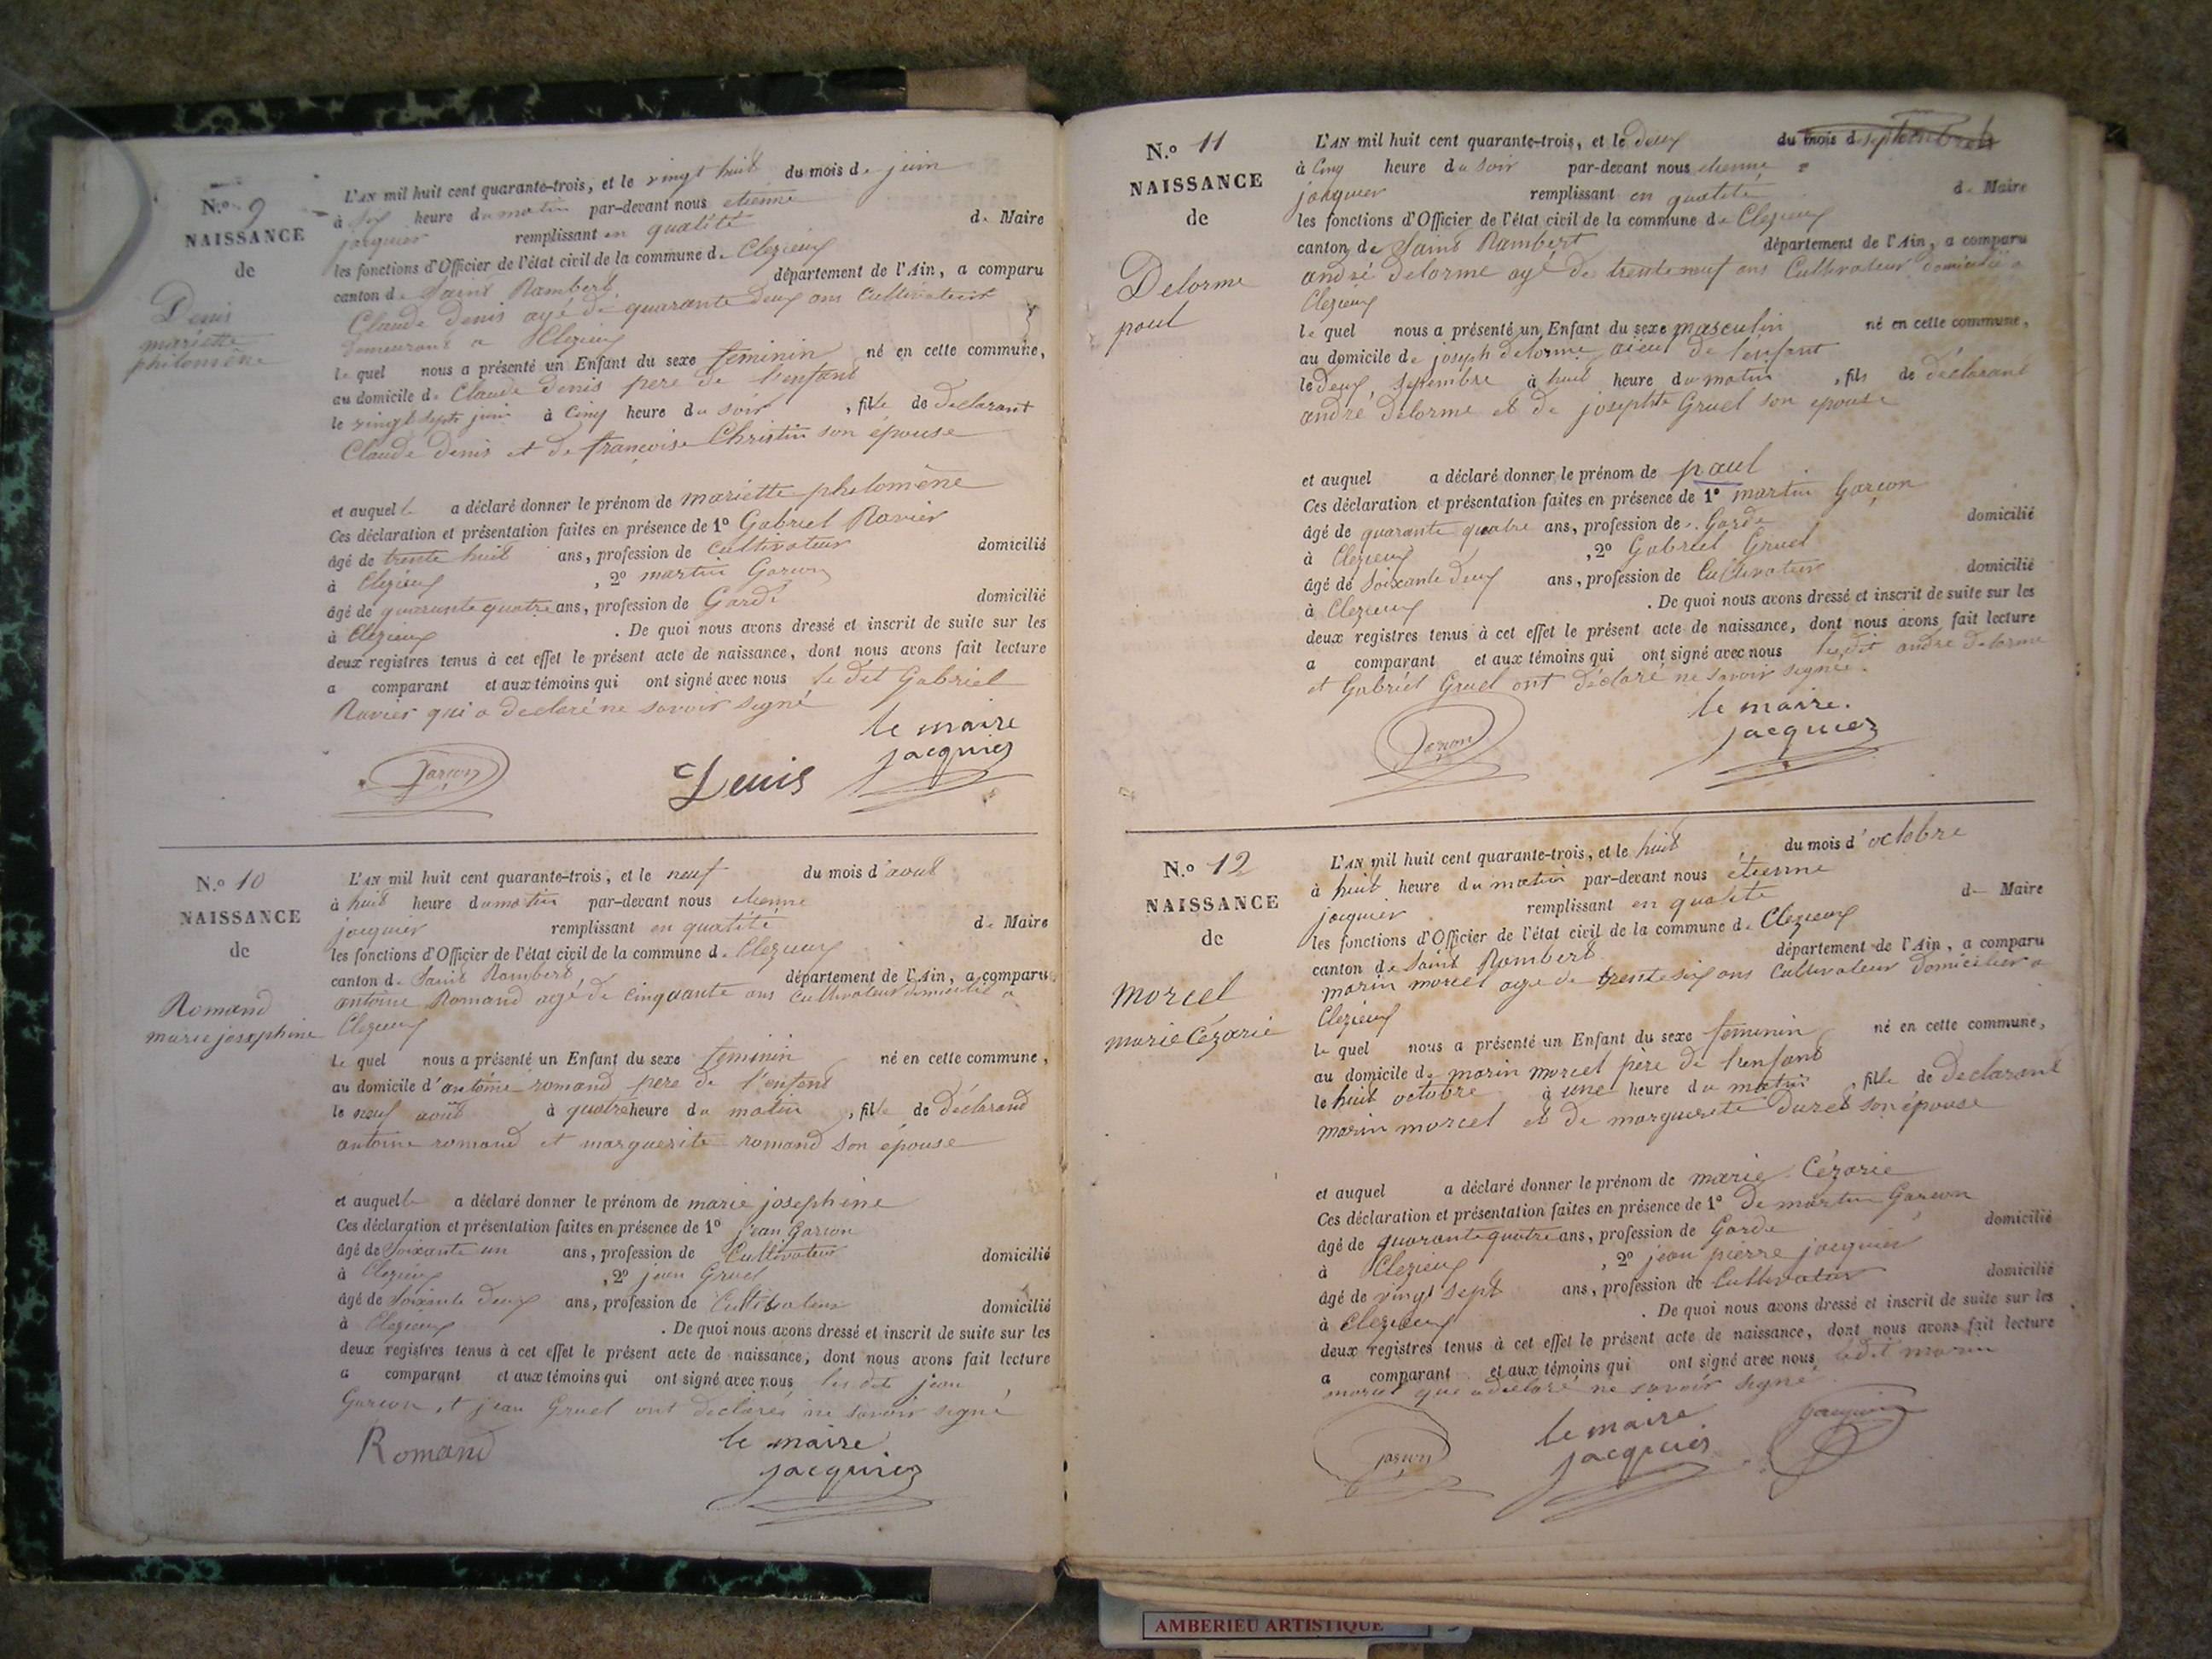 N.º 9
NAISSANCE
de
Denis
mariette
philomène
L'AN mil huit cent quarante-trois, et le vingt huit du mois de juin
à six heure du matin par-devant nous etienne
jacquier remplissant en qualité de Maire
les fonctions d'Officier de l'état civil de la commune de Clezieux
canton de Saint Rambert département de l'Ain, a comparu
Claude Denis agé de quarante deux ans Cultivateur
demeurant a Clezieux
le quel nous a présenté un Enfant du sexe feminin né en cette commune,
au domicile de Claude Denis pere de l'enfant
le vingt sept juin à Cinq heure du soir , fille de déclarant
Claude Denis et de françoise Christin son epouse
et auquel le a déclaré donner le prénom de mariette philomène
Ces déclaration et présentation faites en présence de 1º Gabriel Ravier
âgé de trente huit ans, profession de cultivateur domicilié
à Clezieux , 2º martin Garcon
âgé de quarante quatre ans, profession de Garde domicilié
à Clezieux . De quoi nous avons dressé et inscrit de suite sur les
deux registres tenus à cet effet le présent acte de naissance, dont nous avons fait lecture
a comparant et aux témoins qui ont signé avec nous le dit Gabriel
Ravier qui a declaré ne savoir signé
le maire
jacquier
Garcon
Denis
N.º 10
NAISSANCE
de
Romand
marie josephine
L'AN mil huit cent quarante-trois, et le neuf du mois d'aout
à huit heure du matin par-devant nous etienne
jacquier remplissant en qualité de Maire
les fonctions d'Officier de l'état civil de la commune de Clezieux
canton de Saint Rambert département de l'Ain, a comparu
antoine Romand agé de cinquante ans cultivateur domicilié a
Clezieux
le quel nous a présenté un Enfant du sexe feminin né en cette commune,
au domicile d'antoine romand pere de l'enfant
le neuf août à quatre heure du matin , fille de déclarand
antoine romand et marguerite romand son épouse
et auquel le a déclaré donner le prénom de marie josephine
Ces déclaration et présentation faites en présence de 1º jean Garcon
âgé de Soixante un ans, profession de Cultivateur domicilié
à Clezieux , 2º jean Gruel
âgé de Soixante deux ans, profession de Cultivateur domicilié
à Clezieux . De quoi nous avons dressé et inscrit de suite sur les
deux registres tenus à cet effet le présent acte de naissance, dont nous avons fait lecture
a comparant et aux témoins qui ont signé avec nous les dit jean
Garcon et jean Gruel ont declarés ne savoir signé
Romand
le maire
jacquier
N.º 11
NAISSANCE
de
Delorme
paul
L'AN mil huit cent quarante-trois, et le deux du mois de septembre
à Cinq heure du soir par-devant nous etienne
jacquier remplissant en qualité de Maire
les fonctions d'Officier de l'état civil de la commune de Clezieux
canton de Saint Rambert département de l'Ain, a comparu
andré Delorme agé de trente neuf ans Cultivateur domicilié a
Clezieux
le quel nous a présenté un Enfant du sexe masculin né en cette commune,
au domicile de joseph delorme aieul de l'enfant
le deux septembre à huit heure du matin , fils de déclarant
andré delorme et de josephte Gruel son epouse
et auquel a déclaré donner le prénom de paul
Ces déclaration et présentation faites en présence de 1º martin Garçon
âgé de quarante quatre ans, profession de Garde domicilié
à Clezieux , 2º Gabriel Gruel
âgé de soixante deux ans, profession de Cultivateur domicilié
à Clezieux . De quoi nous avons dressé et inscrit de suite sur les
deux registres tenus à cet effet le présent acte de naissance, dont nous avons fait lecture
a comparant et aux témoins qui ont signé avec nous les dit andré Delorme
et Gabriel Gruel ont déclaré ne savoir signée.
le maire.
jacquier
Garcon
N.º 12
NAISSANCE
de
morcel
marie Cézarie
L'AN mil huit cent quarante-trois, et le huit du mois d'octobre
à huit heure du matin par-devant nous étienne
jacquier remplissant en qualité de Maire
les fonctions d'Officier de l'état civil de la commune de Clezieux
canton de Saint Rambert département de l'Ain, a comparu
marin morcel agé de trente six ans Cultivateur domicilier a
Clezieux
le quel nous a présenté un Enfant du sexe feminin né en cette commune,
au domicile de marin morcel père de l'enfant
le huit octobre à une heure du matin , fille de declarant
marin morcel et de marguerite Duret son épouse
et auquel a déclaré donner le prénom de marie Cézarie
Ces déclaration et présentation faites en présence de 1º De martin Garcon
âgé de quarante quatre ans, profession de Garde domicilié
à Clezieux , 2º jean pierre jacquier
âgé de vingt sept ans, profession de Cultivator domicilié
à Clezieux . De quoi nous avons dressé et inscrit de suite sur les
deux registres tenus à cet effet le présent acte de naissance, dont nous avons fait lecture
a comparant et aux témoins qui ont signé avec nous ledit marin
morcel que a declaré ne savoir signé
Garcon
le maire
jacquier
jacquier
AMBERIEU ARTISTIQUE